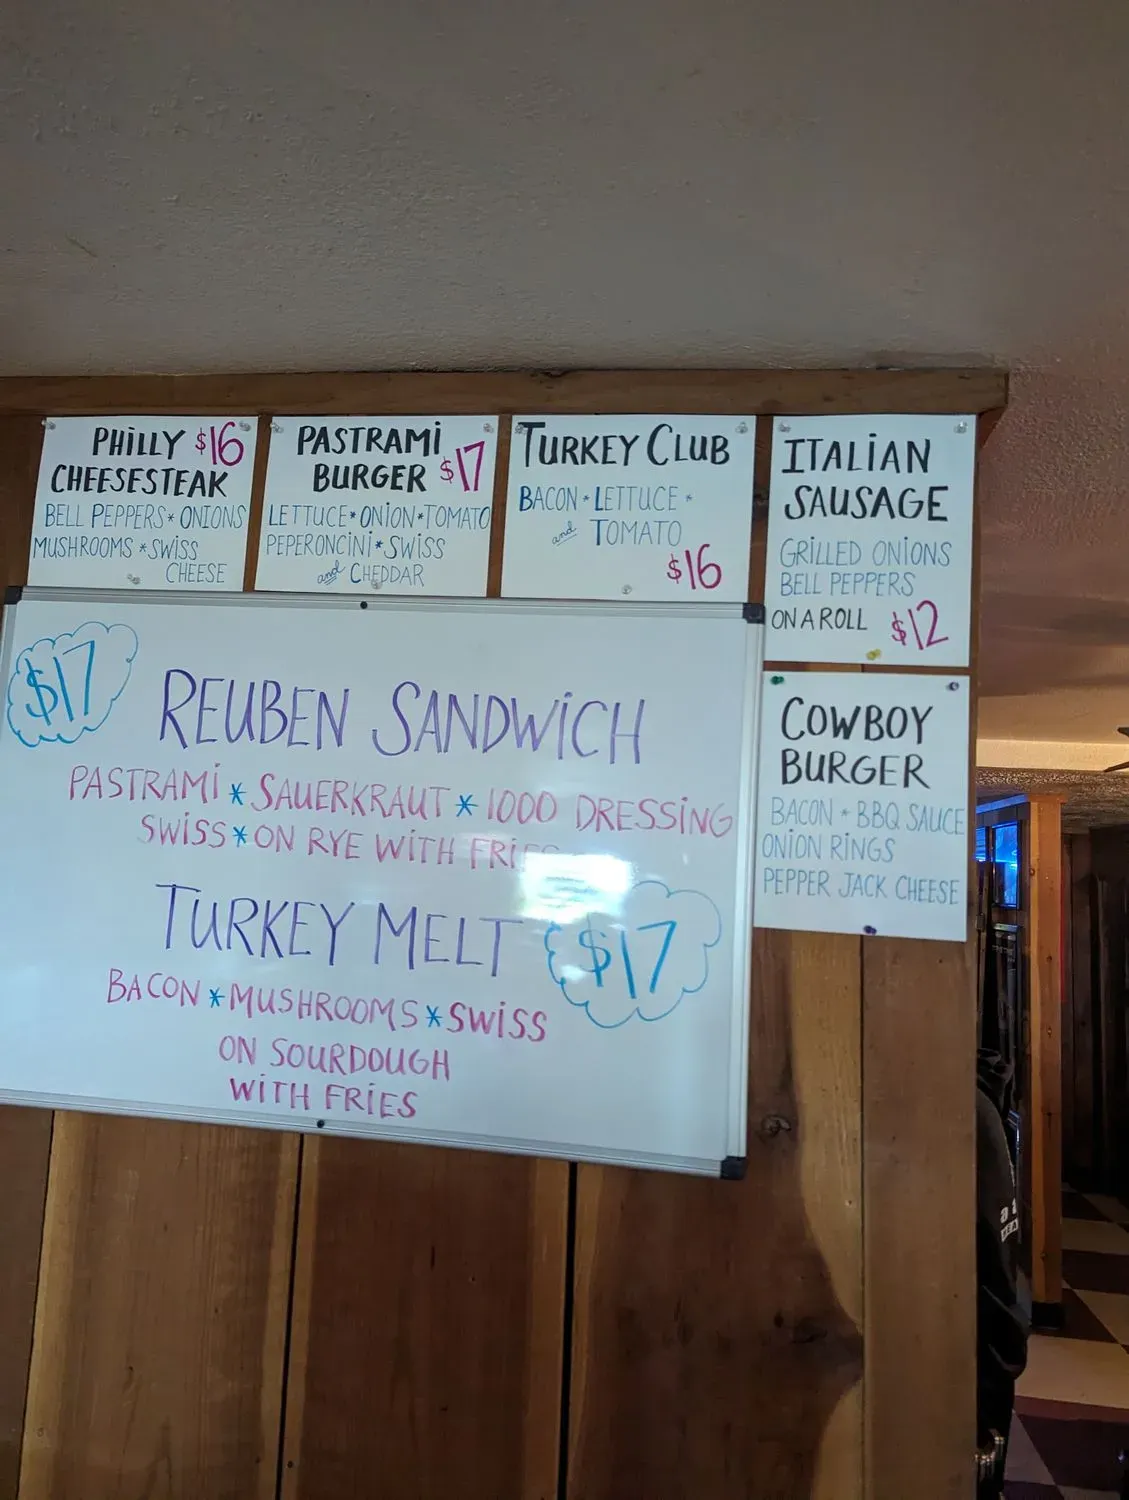 PHILLY $16
CHEESESTEAK
BELL PEPPERS * ONIONS
MUSHROOMS * SWISS
CHEESE
PASTRAMI
BURGER $17
LETTUCE * ONION * TOMATO
PEPERONCINI * SWISS
and CHEDDAR
TURKEY CLUB
BACON * LETTUCE *
and TOMATO
$16
ITALIAN
SAUSAGE
GRILLED ONIONS
BELL PEPPERS
ON A ROLL $12
$17
REUBEN SANDWICH
PASTRAMI * SAUERKRAUT * 1000 DRESSING
SWISS * ON RYE WITH FRIES
TURKEY MELT $17
BACON * MUSHROOMS * SWISS
ON SOURDOUGH
WITH FRIES
COWBOY
BURGER
BACON * BBQ SAUCE
ONION RINGS
PEPPER JACK CHEESE